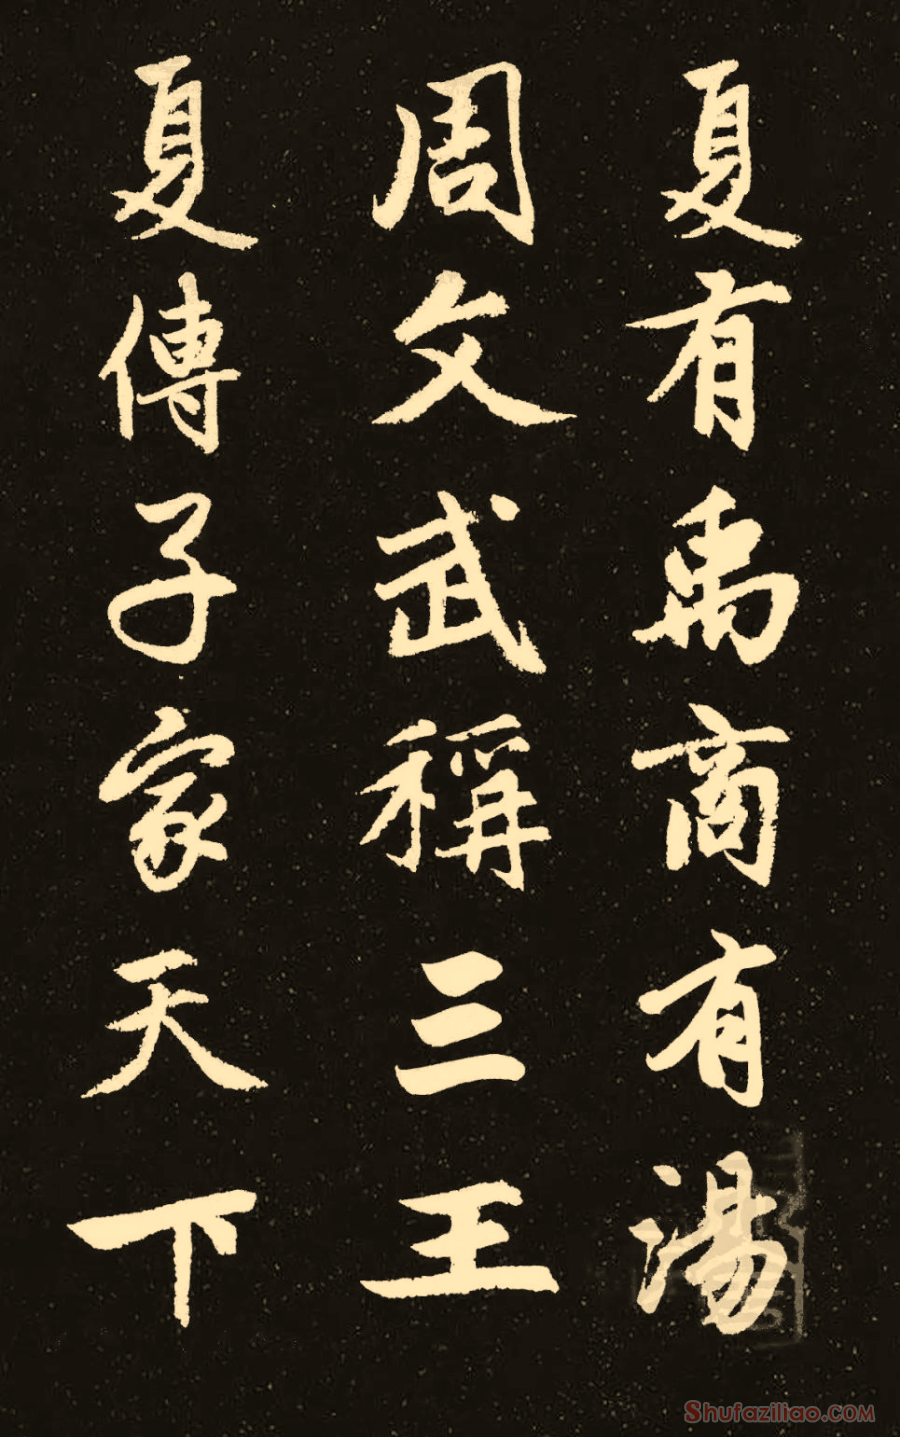 夏有禹商有湯
周文武稱三王
夏傳子家天下
Shufaziliao.COM